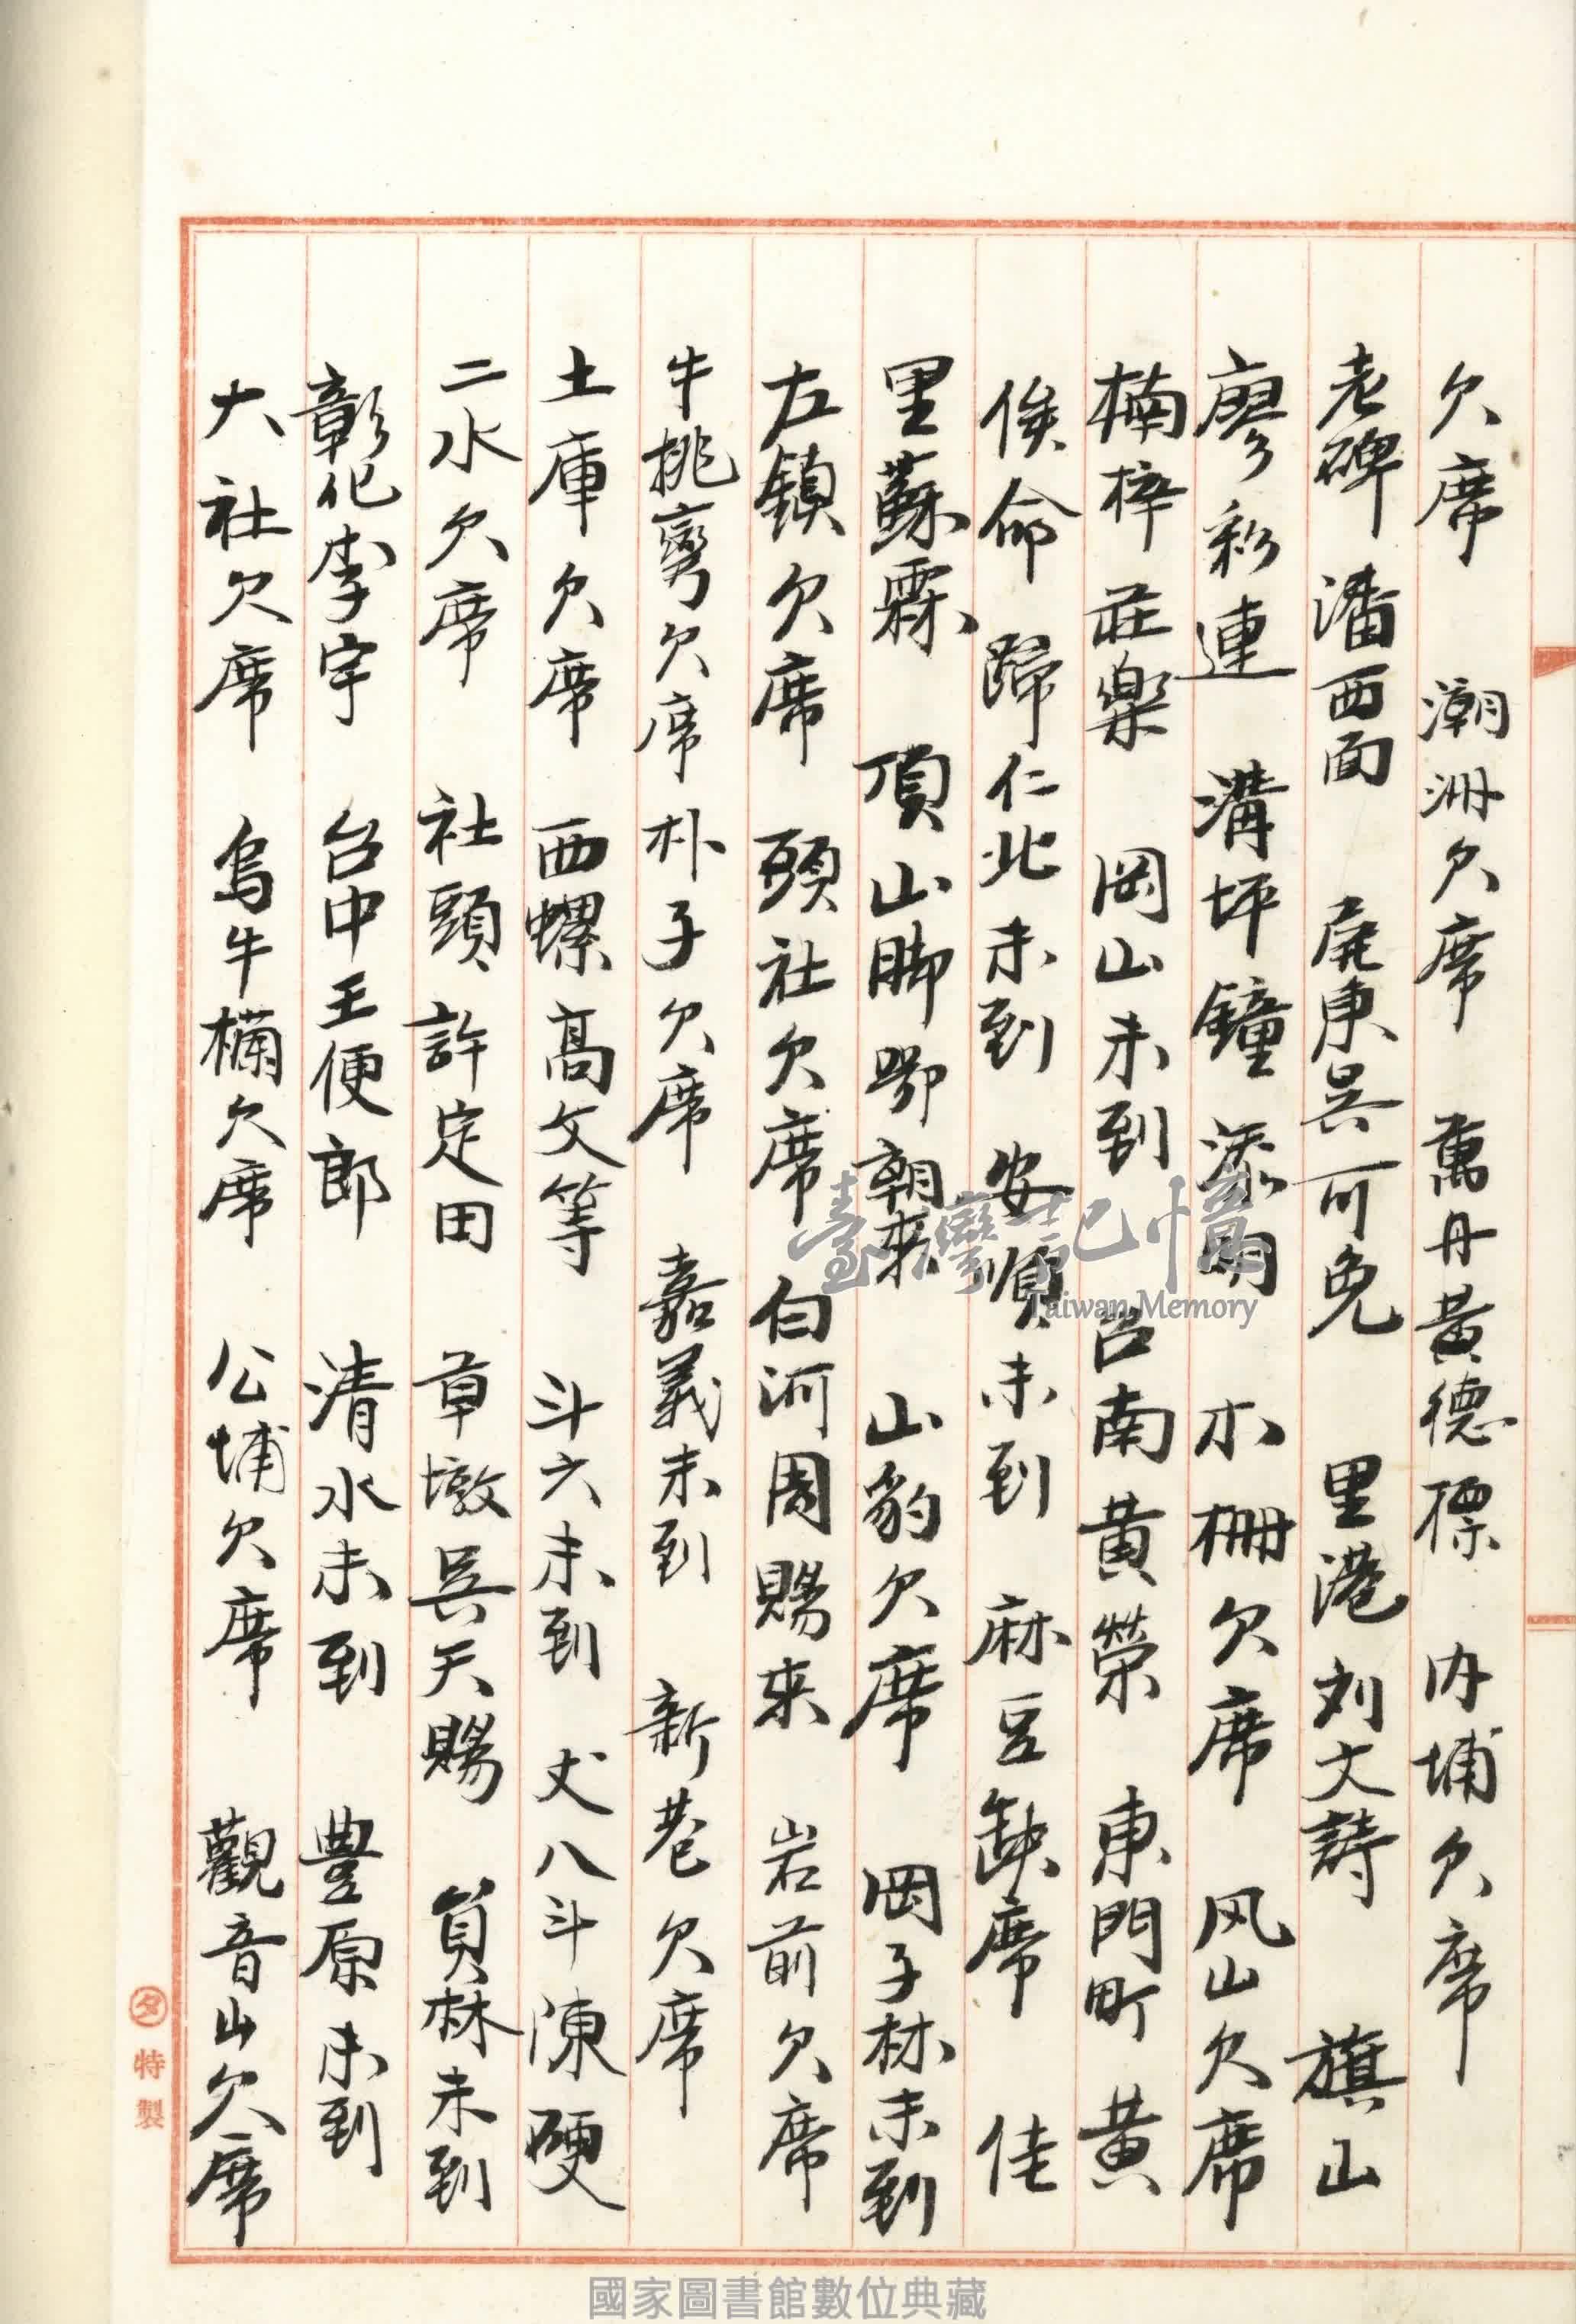 欠席 潮洲欠席 萬丹黃德標 內埔欠席
老碑潘西面 屛東吳可免 里港刘大詩 旗山
廖彩連 溝坪鐘添明 木柵欠席 风山欠席
楠梓莊樂 岡山未到 台南黃榮 東門町黃
俟命 歸仁北未到 安順未到 麻豆缺席 佳
里蘇霖 頂山脚鄂朝來 山豹欠席 岡子林未到
左鎮欠席 頭社欠席 白河周賜來 岩前欠席
牛挑灣欠席 朴子欠席 嘉義未到 新巷欠席
土庫欠席 西螺高文等 斗六未到 丈八斗陳硬
二水欠席 社頭許定田 草墩吳天賜 員林未到
彰化李宇 台中王便郎 清水未到 豐原未到
大社欠席 烏牛欄欠席 公埔欠席 觀音山欠席
特製
臺灣記憶
Taiwan Memory
國家圖書館數位典藏